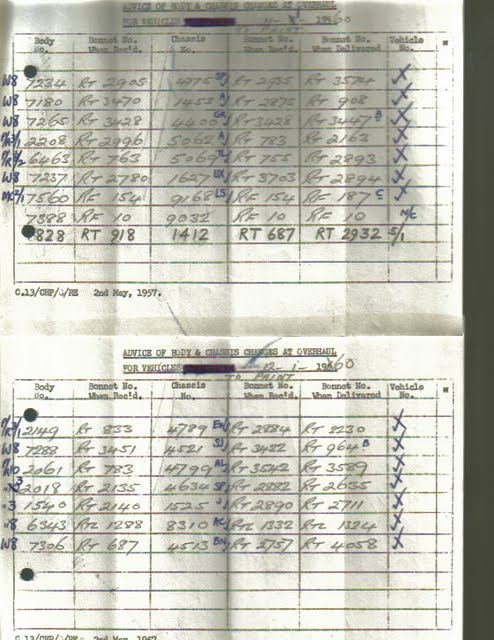 ADVICE OF BODY & CHASSIS CHANGES AT OVERHAUL
FOR VEHICLES 1960
TO PAINT
Body No. Bonnet No. When Rec'd. Chassis No. Bonnet No. When Rec'd. Bonnet No. When Delivered Vehicle No.
W8 7234 RT 2905 4775 SP RT 2935 RT 3574 X
W8 7180 RT 3470 1453 AJ RT 2875 RT 908 X
W8 7265 RT 3428 4400 GR RT 3428 RT 3447 B X
2208 RT 2996 5062 AJ RT 783 RT 2163 X
6463 RT 763 5069 TL RT 755 RT 2893 X
W8 7237 RT 2780 1627 UX RT 3703 RT 2894 X
MC2/1 7560 RF 154 9168 LS RF 154 RF 187 C X
7388 RF 10 9032 RF 10 RF 10 N/C
828 RT 918 1412 RT 687 RT 2932 5/1
C.13/CHP/J/RE 2nd May, 1957.
ADVICE OF BODY & CHASSIS CHANGES AT OVERHAUL
FOR VEHICLES 12-1-1960
TO PAINT
Body No. Bonnet No. When Rec'd. Chassis No. Bonnet No. When Rec'd. Bonnet No. When Delivered Vehicle No.
2149 RT 833 4789 EW RT 2884 RT 3230 X
W8 7288 RT 3451 4521 SJ RT 3432 RT 964 B X
2061 RT 783 4799 AL RT 3542 RT 3589 X
2018 RT 2135 4634 SP RT 2882 RT 2635 X
3 1540 RT 2140 1525 J RT 2890 RT 2711 X
8 6343 RTL 1298 8310 AC RTL 1332 RTL 1324 X
W8 7306 RT 687 4513 BN RT 2757 RT 4058 X
C.13/CHP/J/RE 2nd May, 1957